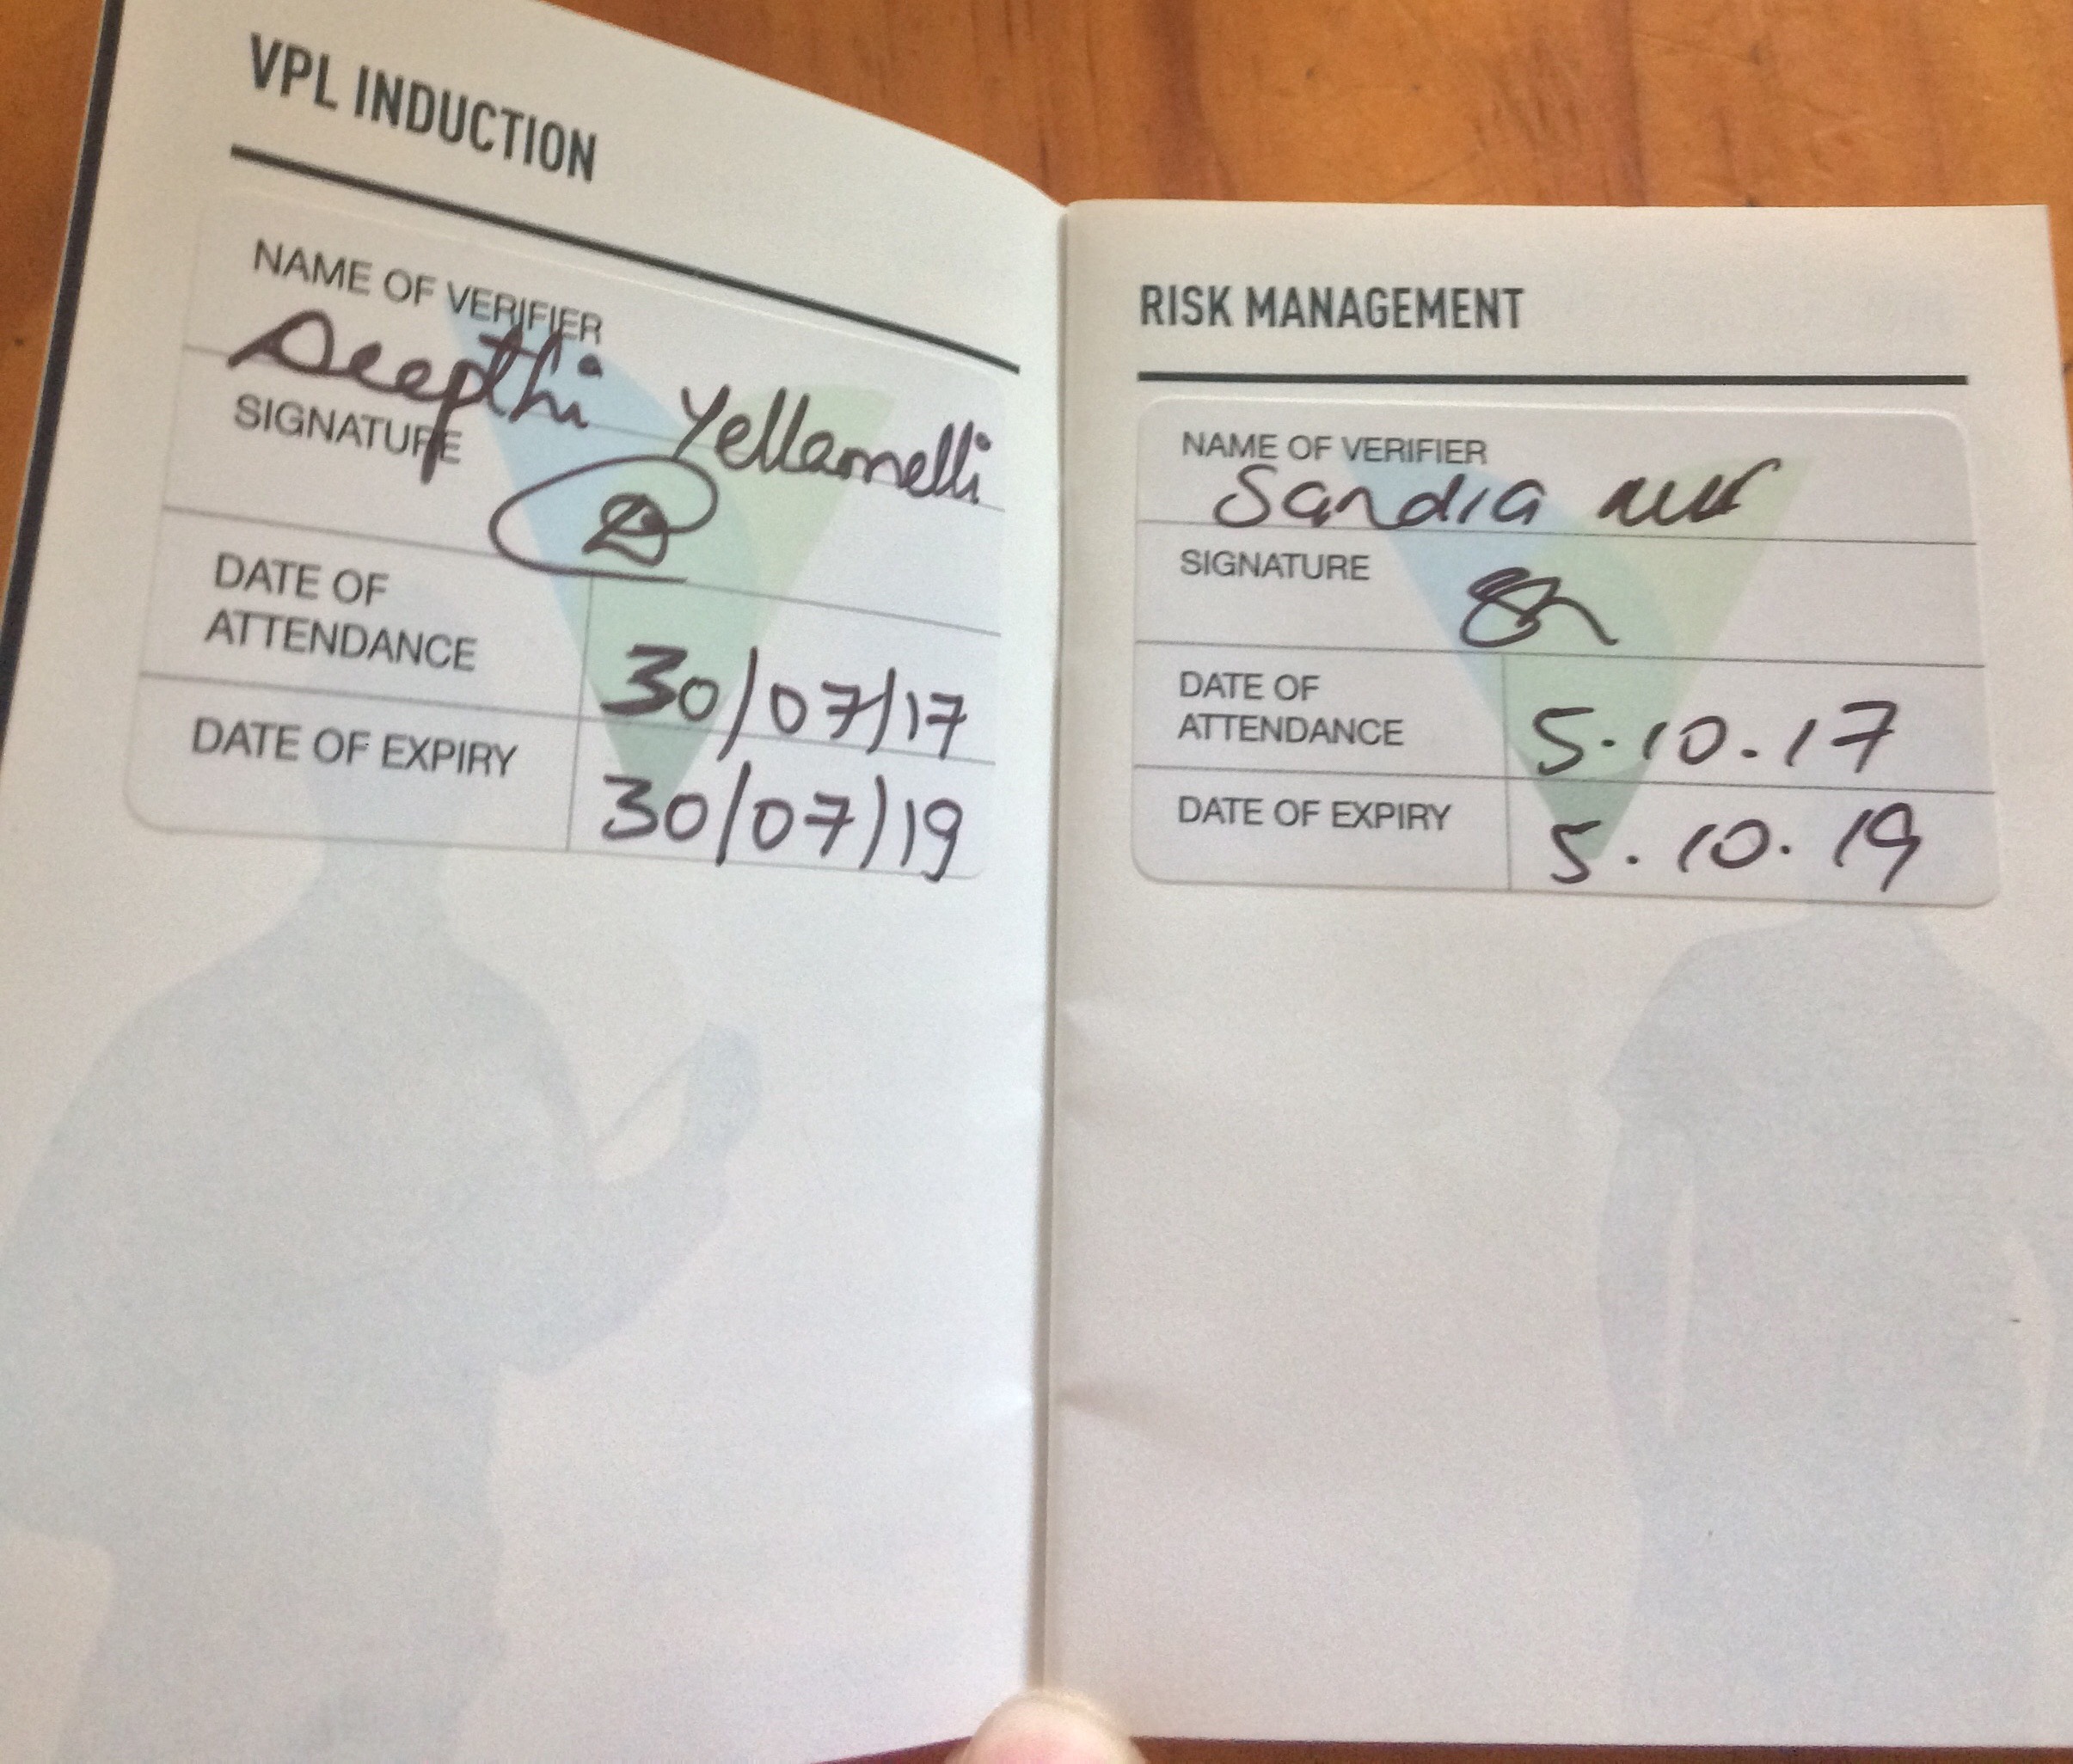 VPL INDUCTION
NAME OF VERIFIER
Deepthi Yellamelli
SIGNATURE
DATE OF
ATTENDANCE
30/07/17
DATE OF EXPIRY
30/07/19
RISK MANAGEMENT
NAME OF VERIFIER
Sandra
SIGNATURE
DATE OF
ATTENDANCE
5.10.17
DATE OF EXPIRY
5.10.19